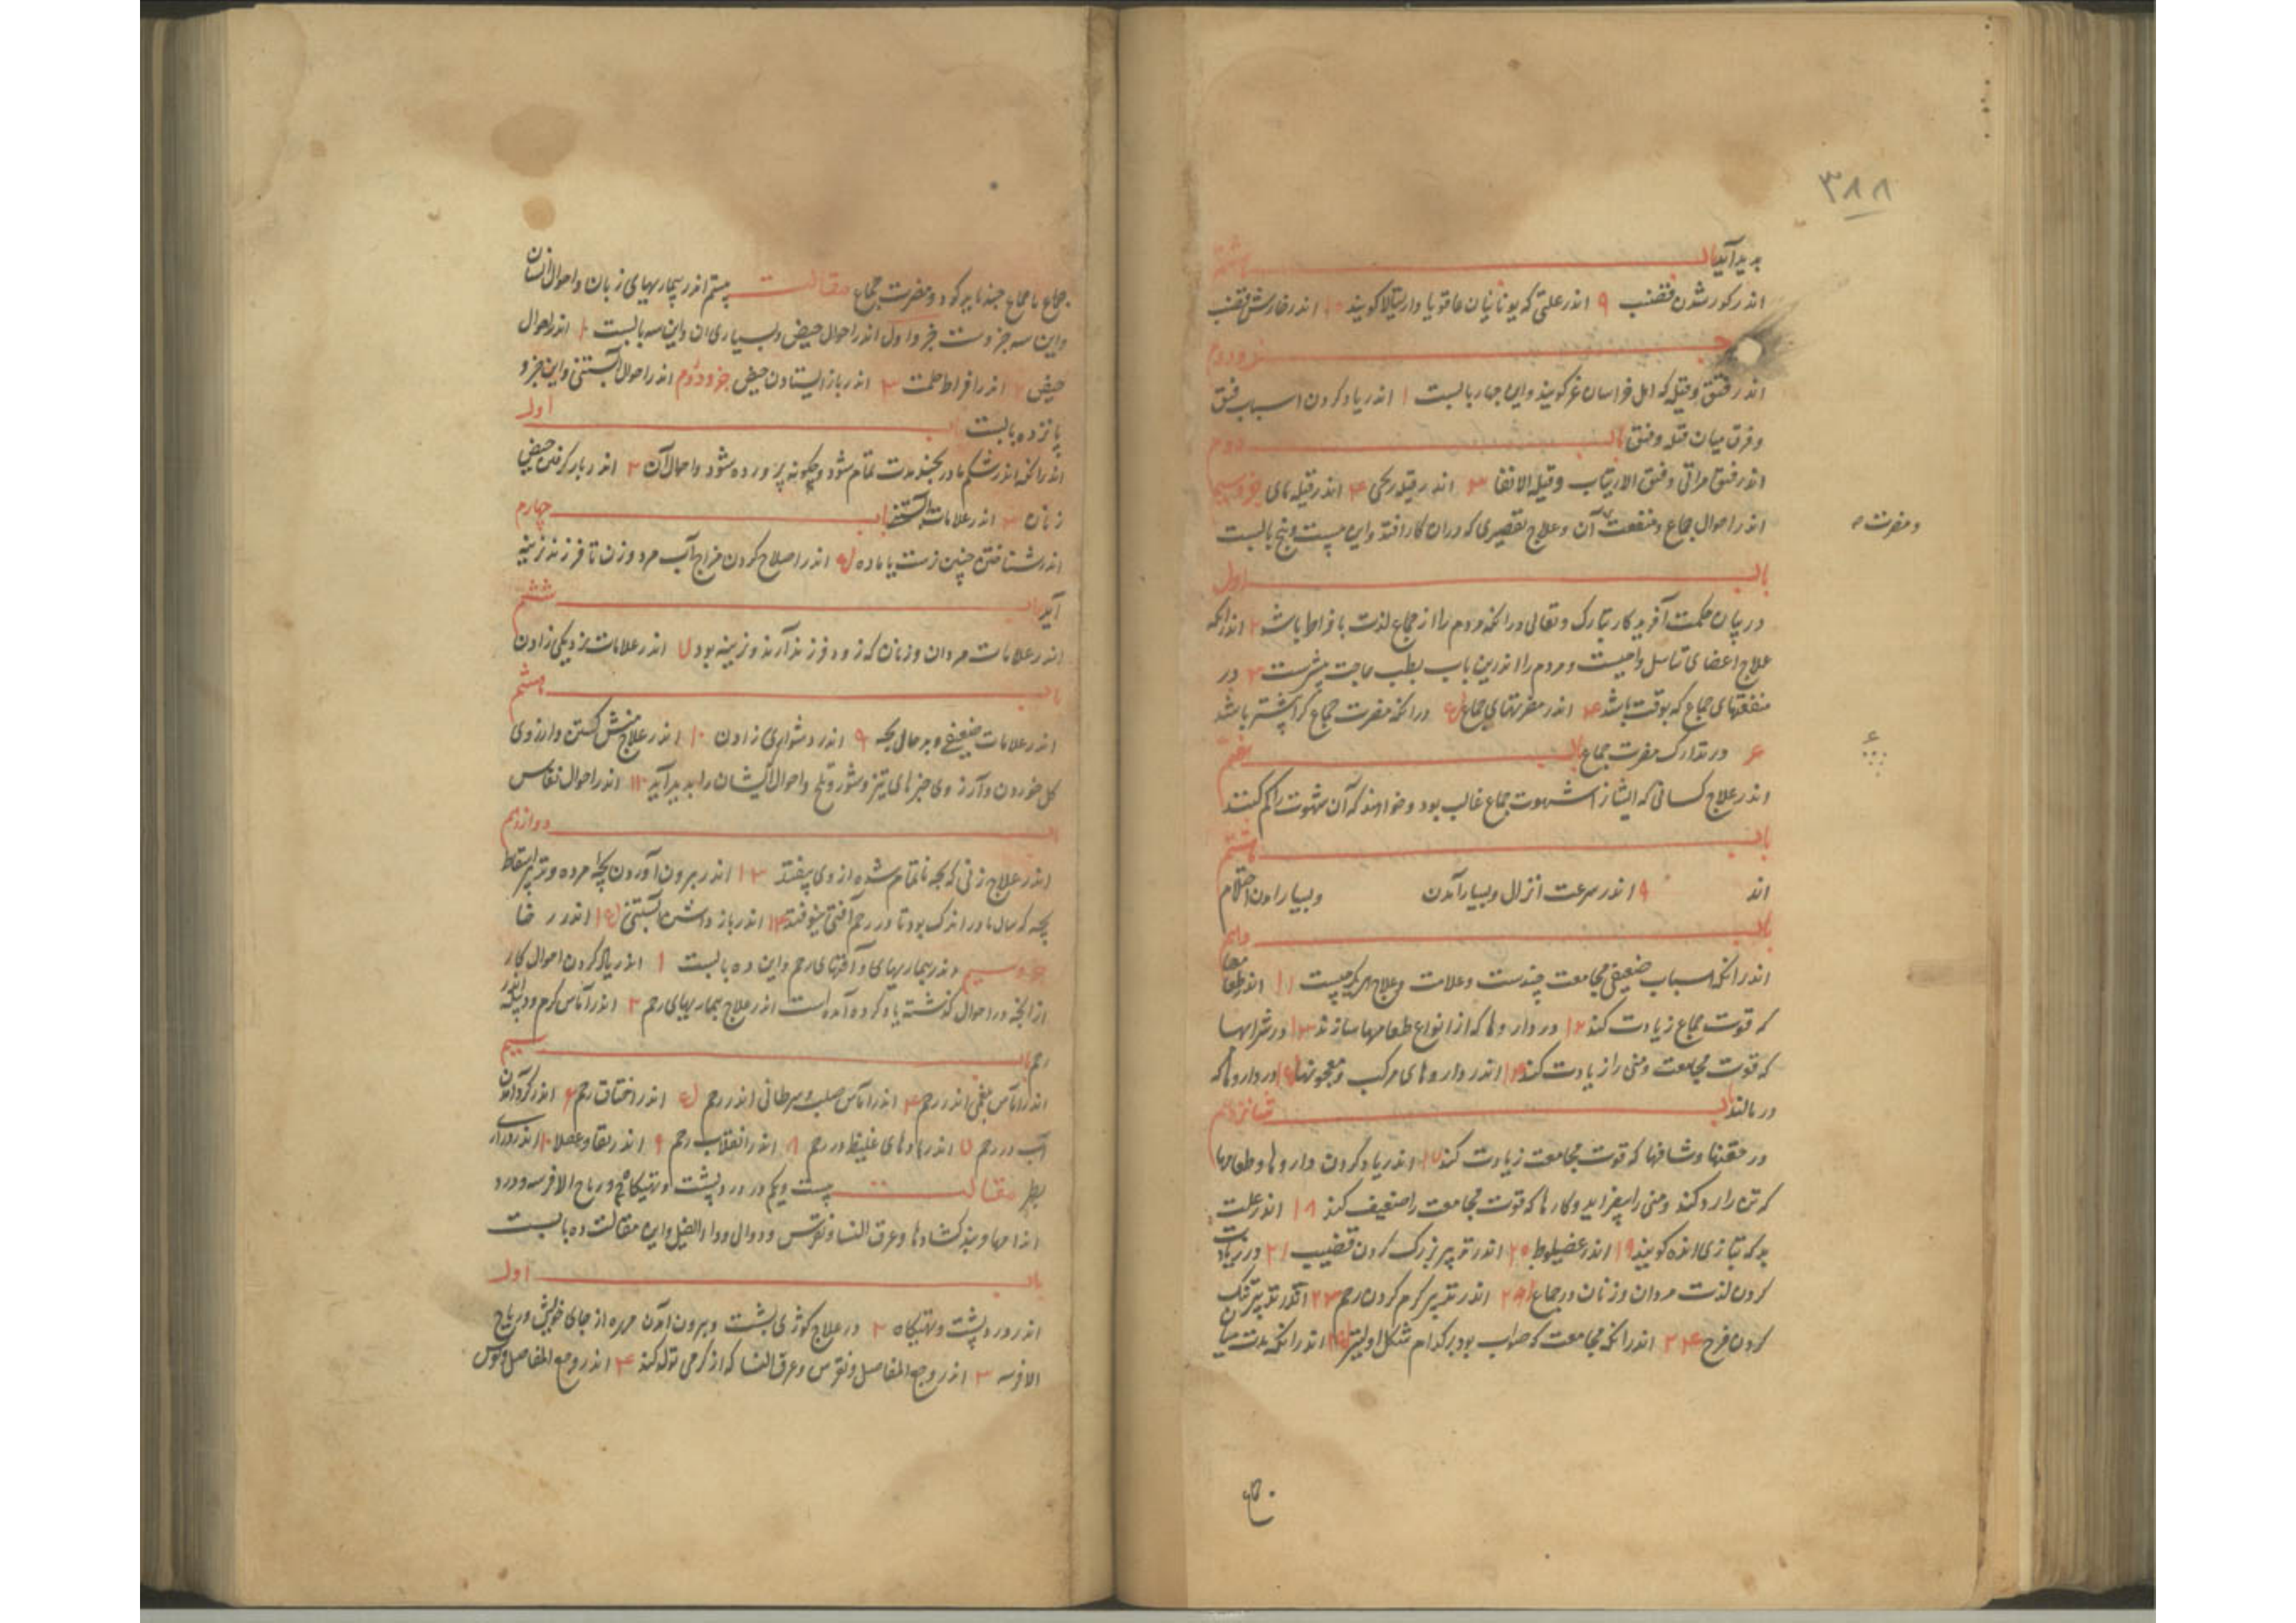 ۳۸۸
بدید آید باب هشتم
اندر کور شدن قضیب ۹ اندر علتی که یونانیان عاقویا دارسیالا کویند ۱۰ اندر خارش قضیب
جزو دوم
اندر فتق و قیله که اهل خراسان غر کویند واین چهار بابست ۱ اندر یاد کردن اسباب فتق
و فرق میان قیله و فتق باب دوم
اندر فتق مراقی و فتق الاربیات و قیلة الانفا ۳ اندر قیله ریحی ۴ اندر قیله مای جزو سیم
اندر احوال جماع و منفعت آن و علاج تقصیری که دران کار افتد واین بیست و پنج بابست
و مضرت
باب اول
در بیان حکمت آفریدکار تبارک و تعالی در انکه مردم را از جماع لذت بافراط باشد ۲ اندر انکه
علاج اعضای تناسل واجبست و مردم را اندرین باب بطب حاجت بیشترست ۳ در
منفعتهای جماع که بوقت باشد ۴ اندر مضرتهای جماع ۵ در انکه مضرت جماع کرا بیشتر باشد
۶ در تدارک مضرت جماع باب هفتم
اندر علاج کسانی که ایشانرا شهوت جماع غالب بود و خواهند که آن شهوت را کم کنند
باب هشتم
اند ۹ اندر سرعت انزال و بسیار آمدن و بسیار امدن احتلام
باب دهم
اندر انکه اسباب ضعیفی مجامعت چندست و علامت و علاج هر یک چیست ۱۱ اندر طعامها
که قوت جماع زیادت کند ۱۲ در داروها که از انواع طعامها سازند ۱۳ در شرابها
که قوت مجامعت و منی را زیادت کند ۱۴ اندر داروهای مرکب و معجونها ۱۵ در داروها که
در مالند باب شانزدهم
در حقنها و شافها که قوت مجامعت زیادت کند ۱۷ اندر یاد کردن داروها و طعامها
که تن را رد کند و منی را بیفزاید و کارها که قوت مجامعت را ضعیف کند ۱۸ اندر علت
بد که بتازی ابنه کویند ۱۹ اندر عضیوط ۲۰ اندر تدبیر بزرک کردن قضیب ۲۱ در زیادت
کردن لذت مردان و زنان در جماع ۲۲ اندر تدبیر کرم کردن رحم ۲۳ اندر تدبیر تنک
کردن فرج ۲۴ اندر انکه مجامعت که صواب بود بر کدام شکل اولیتر ۲۵ اندر انکه مدت میان
جماع تا جماع چند باید که بود و مضرت جماع مقالت بیستم اندر بیماریهای زنان و احوال ایشان
واین سه جزوست جزو اول اندر احوال حیض و بسیاری ان واین سه بابست ۱ اندر احوال
حیض ۲ اندر افراط طمث ۳ اندر باز ایستادن حیض جزو دوم اندر احوال آبستنی واین جزو
پانزده بابست باب اول
اندر انکه اندر شکم مادر بچند مدت تمام شود و چکونه پرورده شود و احوال آن ۲ اندر بار کرفتن حیض
زنان ۳ اندر علامات آبستنی باب چهارم
اندر شناختن جنین نرست یا ماده ۵ اندر اصلاح کردن مزاج آب مرد و زن تا فرزند نرینه
آید باب ششم
اندر علامات مردان و زنان که زود فرزند آرند و نرینه بود ۷ اندر علامات نزدیکی زادن
باب هشتم
اندر علامات ضعیفی و بد حالی بچه ۹ اندر دشواری زادن ۱۰ اندر علاج منش کشتن و ارزوی
کل خوردن و آرزوی چیزهای تیز و شور و تلخ و احوال ایشان را بدید آید ۱۱ اندر احوال نفاس
باب دوازدهم
اندر علاج زنی که بچه ناتمام شده از وی بیفتد ۱۳ اندر برون آوردن بچه مرده و تدبیر اسقاط
بچه که سال مادر اندک بود تا در رحم آفتی نیوفتد ۱۴ اندر باز داشتن آبستنی ۱۵ اندر رحا
جزو سیم اندر بیماریهای و آفتهای رحم واین ده بابست ۱ اندر یاد کردن احوال کار
از انچه در احوال کذشته یاد کرده آمده است اندر علاج بیماریهای رحم ۲ اندر آماس کرم و دبیله اندر
رحم باب سیم
اندر اماس بلغمی اندر رحم ۴ اندر اماس صلب و سرطانی اندر رحم ۵ اندر اختناق رحم ۶ اندر کرد آمدن
آب در رحم ۷ اندر بادهای غلیظ در رحم ۸ اندر انقلاب رحم ۹ اندر رتقا و عفلا ۱۰ اندر درازی
بظر مقالت بیست و یکم در درد پشت و تهیکاه و ریاح الافرسه و درد
اندامها و بند کشادها و عرق النسا و نقرس و دوالی و داء الفیل واین مقالت ده بابست
باب اول
اندر درد پشت و تهیکاه ۲ در علاج کوژی پشت و برون آمدن مهره از جای خویش و ریاح
الافرسه ۳ اندر وجع المفاصل و نقرس و عرق النسا که از کرمی تولد کند ۴ اندر وجع المفاصل و نقرس